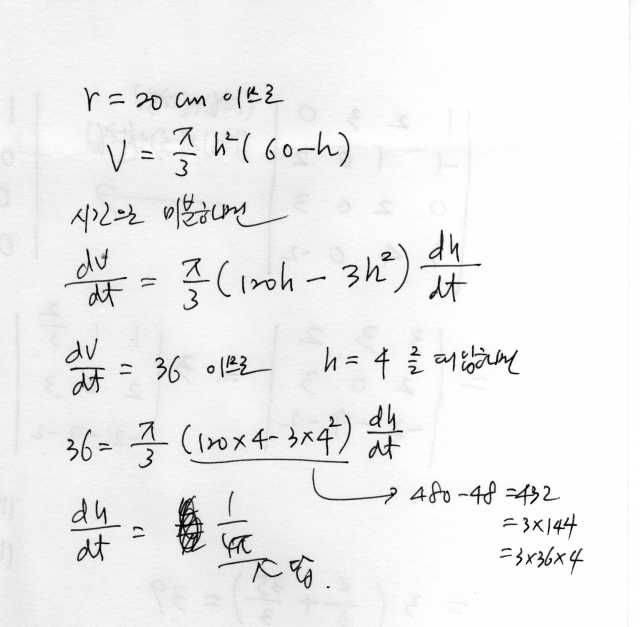 r = 20 cm 이므로
V = π/3 h²(60-h)
시간으로 미분하면
dV/dt = π/3 (120h - 3h²) dh/dt
dV/dt = 36 이므로 h = 4 를 대입하면
36 = π/3 (120×4-3×4²) dh/dt
→ 480-48 = 432
= 3×144
= 3×36×4
dh/dt = 1/4π